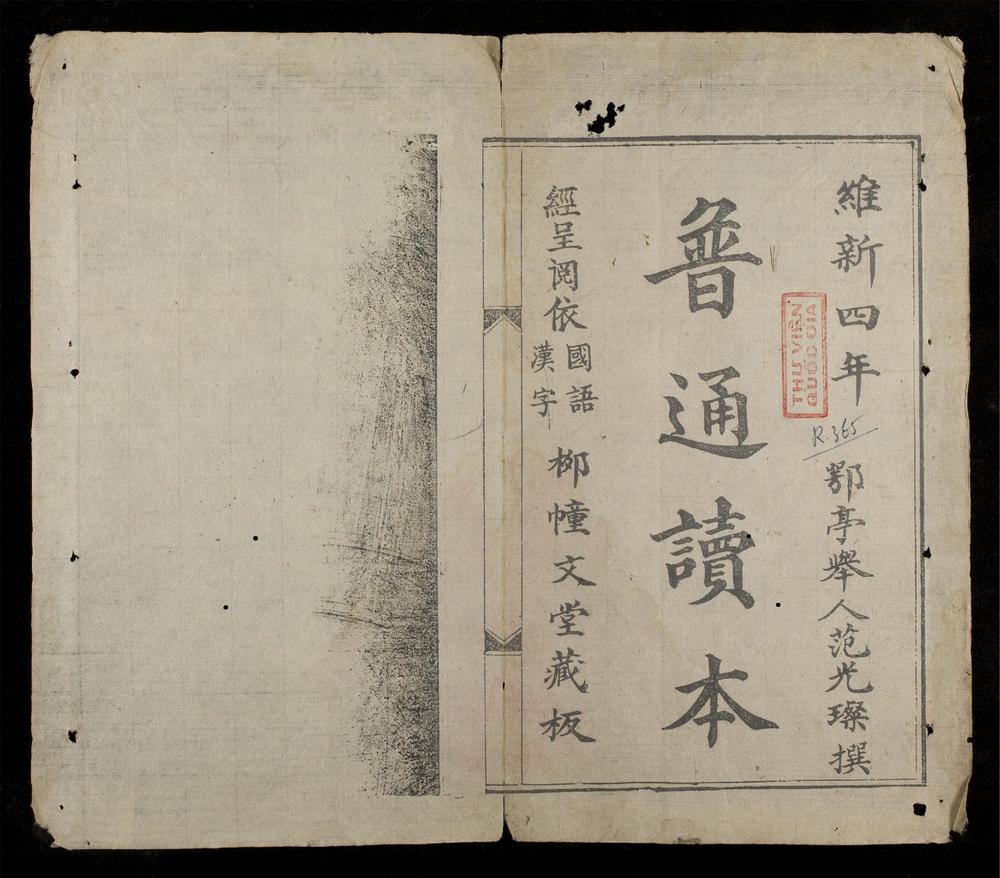 維新四年
鄂亭舉人范光璨撰
普通讀本
經呈阅依
國語
漢字
柳幢文堂藏板
THƯ VIỆN
QUỐC GIA
R.365